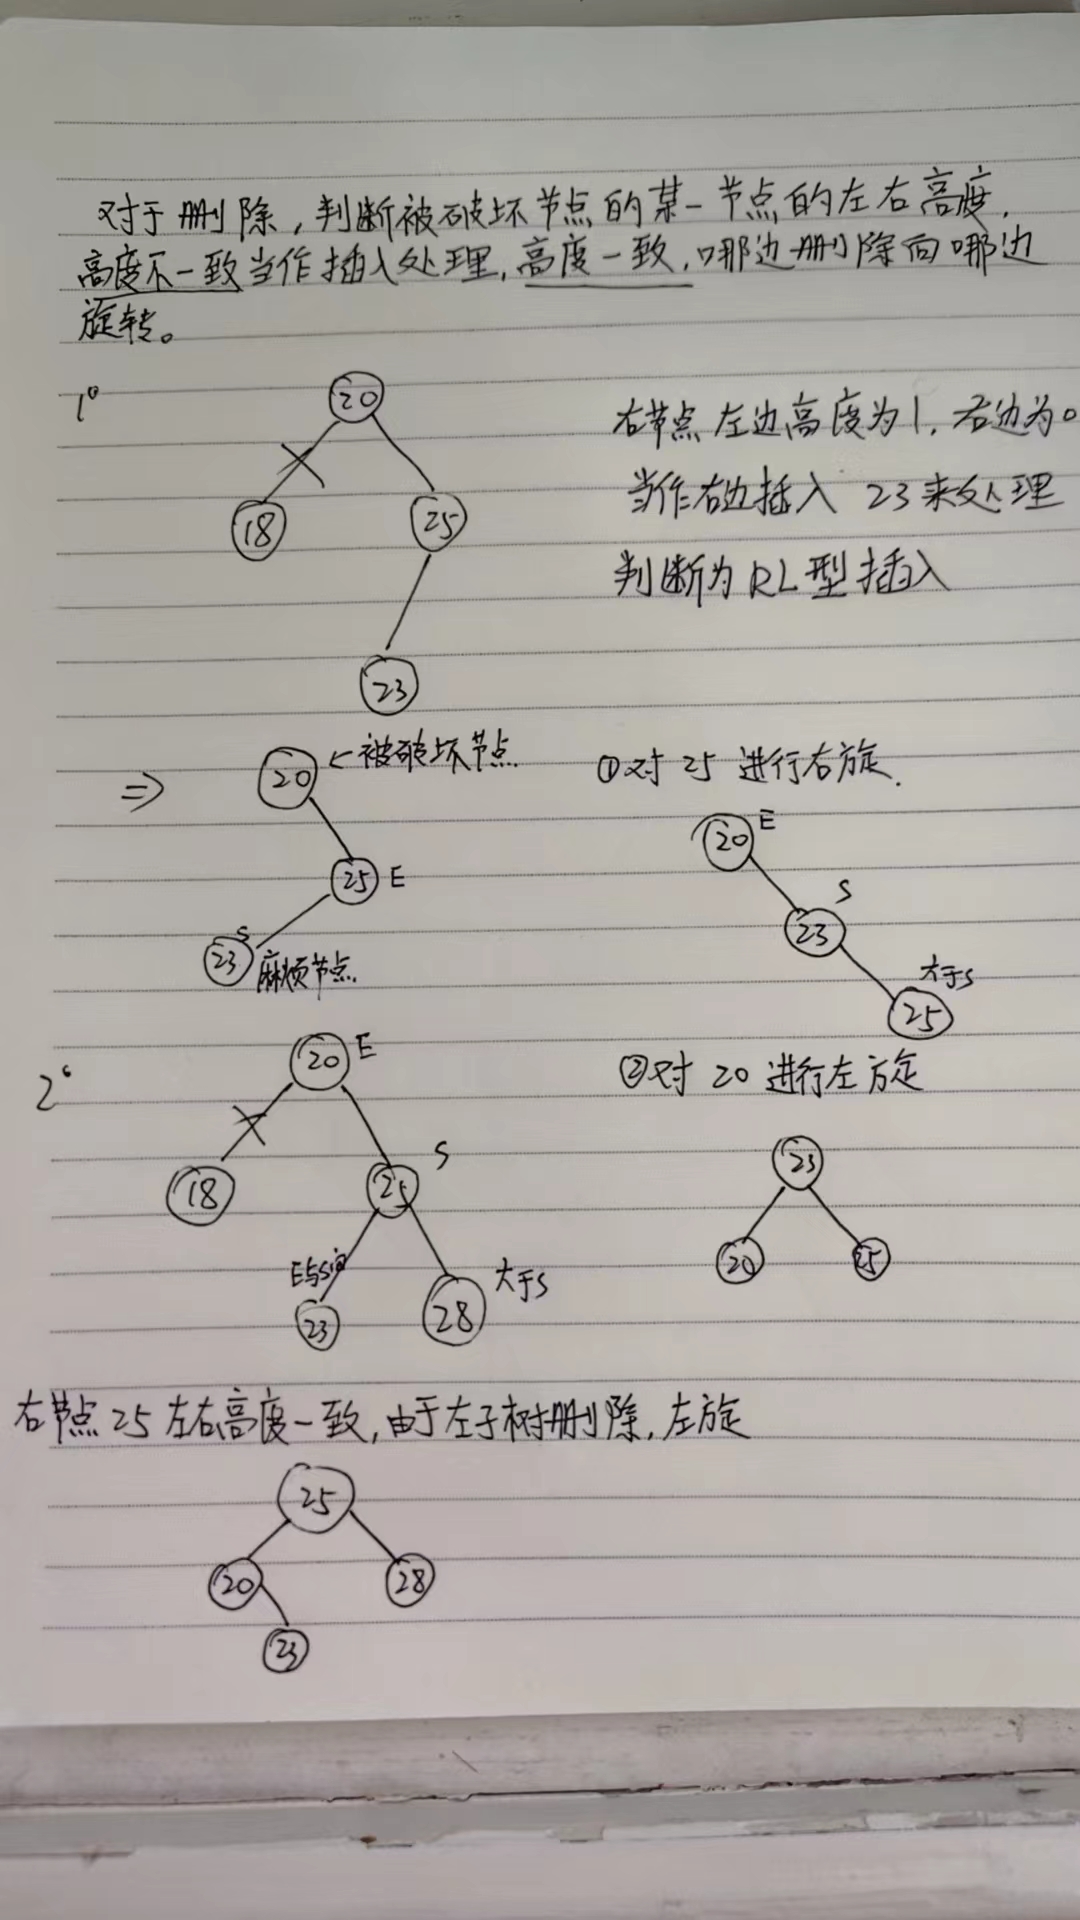 对于删除，判断被破坏节点的某一节点的左右高度，
高度不一致当作插入处理，高度一致，哪边删除向哪边
旋转。
1°
20
18
25
23
右节点左边高度为1，右边为0
当作右边插入 23来处理
判断为RL型插入
⇒
20 ←被破坏节点
25 E
S
23 麻烦节点
①对 25 进行右旋
20 E
S
23
大于S
25
2°
20 E
18
S
25
E与S间
23
28
大于S
②对 20 进行左旋
23
20
25
右节点25左右高度一致，由于左子树删除，左旋
25
20
28
23